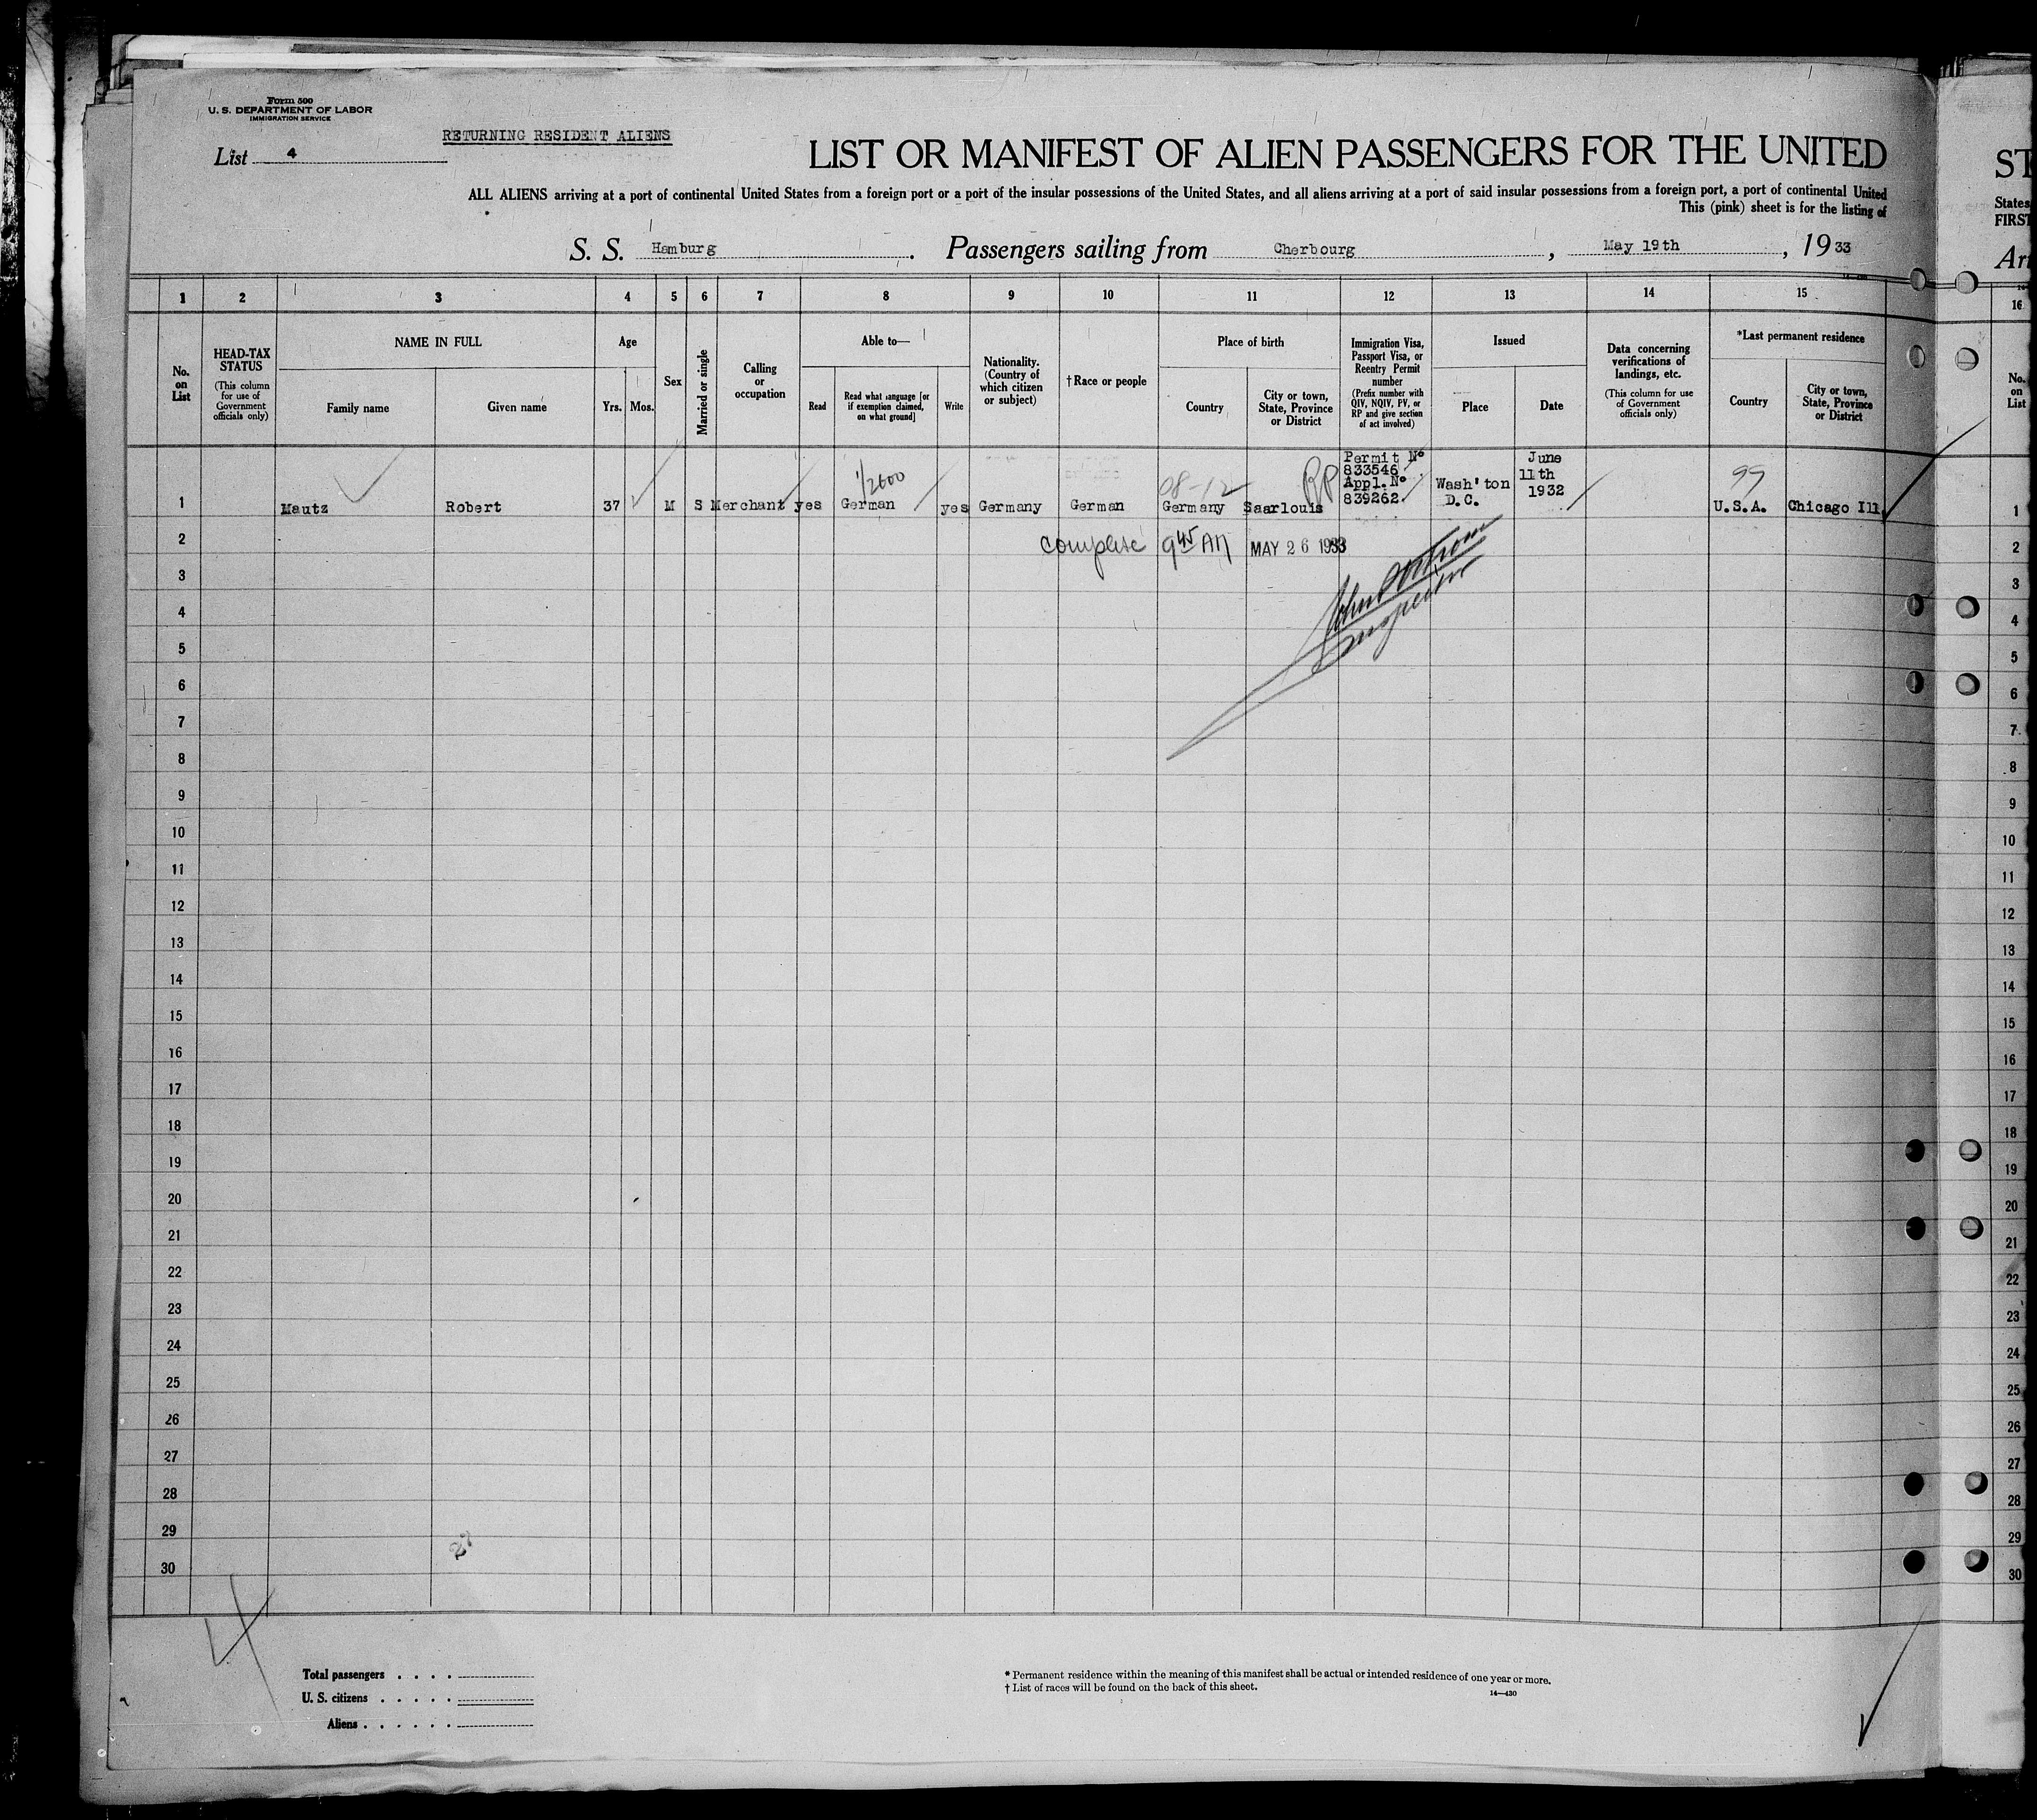 Form 500
U. S. DEPARTMENT OF LABOR
IMMIGRATION SERVICE
RETURNING RESIDENT ALIENS
List 4
LIST OR MANIFEST OF ALIEN PASSENGERS FOR THE UNITED
ST
ALL ALIENS arriving at a port of continental United States from a foreign port or a port of the insular possessions of the United States, and all aliens arriving at a port of said insular possessions from a foreign port, a port of continental United
States
This (pink) sheet is for the listing of
FIRST
S. S. Hamburg . Passengers sailing from Cherbourg , May 19th , 19 33
Ar
1 2 3 4 5 6 7 8 9 10 11 12 13 14 15 16
No. on List
HEAD-TAX STATUS
(This column for use of Government officials only)
NAME IN FULL
Family name
Given name
Age
Yrs. Mos.
Sex
Married or single
Calling or occupation
Able to—
Read
Read what language [or if exemption claimed, on what ground]
Write
Nationality. (Country of which citizen or subject)
† Race or people
Place of birth
Country
City or town, State, Province or District
Immigration Visa, Passport Visa, or Reentry Permit number
(Prefix number with QIV, NQIV, PV, or RP and give section of act involved)
Issued
Place
Date
Data concerning verifications of landings, etc.
(This column for use of Government officials only)
*Last permanent residence
Country
City or town, State, Province or District
No. on List
1 Mautz Robert 37 M S Merchant yes 1/2600 German yes Germany German 08-12 Germany Saarlouis RP Permit No 833546 Appl. No 839262. Wash'ton D.C. June 11th 1932 99 U.S.A. Chicago Ill. 1
2 complete 9 45 AM MAY 26 1933 2
3 3
Inspector
4 4
5 5
6 6
7 7
8 8
9 9
10 10
11 11
12 12
13 13
14 14
15 15
16 16
17 17
18 18
19 19
20 20
21 21
22 22
23 23
24 24
25 25
26 26
27 27
28 28
29 29
30 30
Total passengers . . . .
U. S. citizens . . . . .
Aliens . . . . . .
* Permanent residence within the meaning of this manifest shall be actual or intended residence of one year or more.
† List of races will be found on the back of this sheet.
14—430